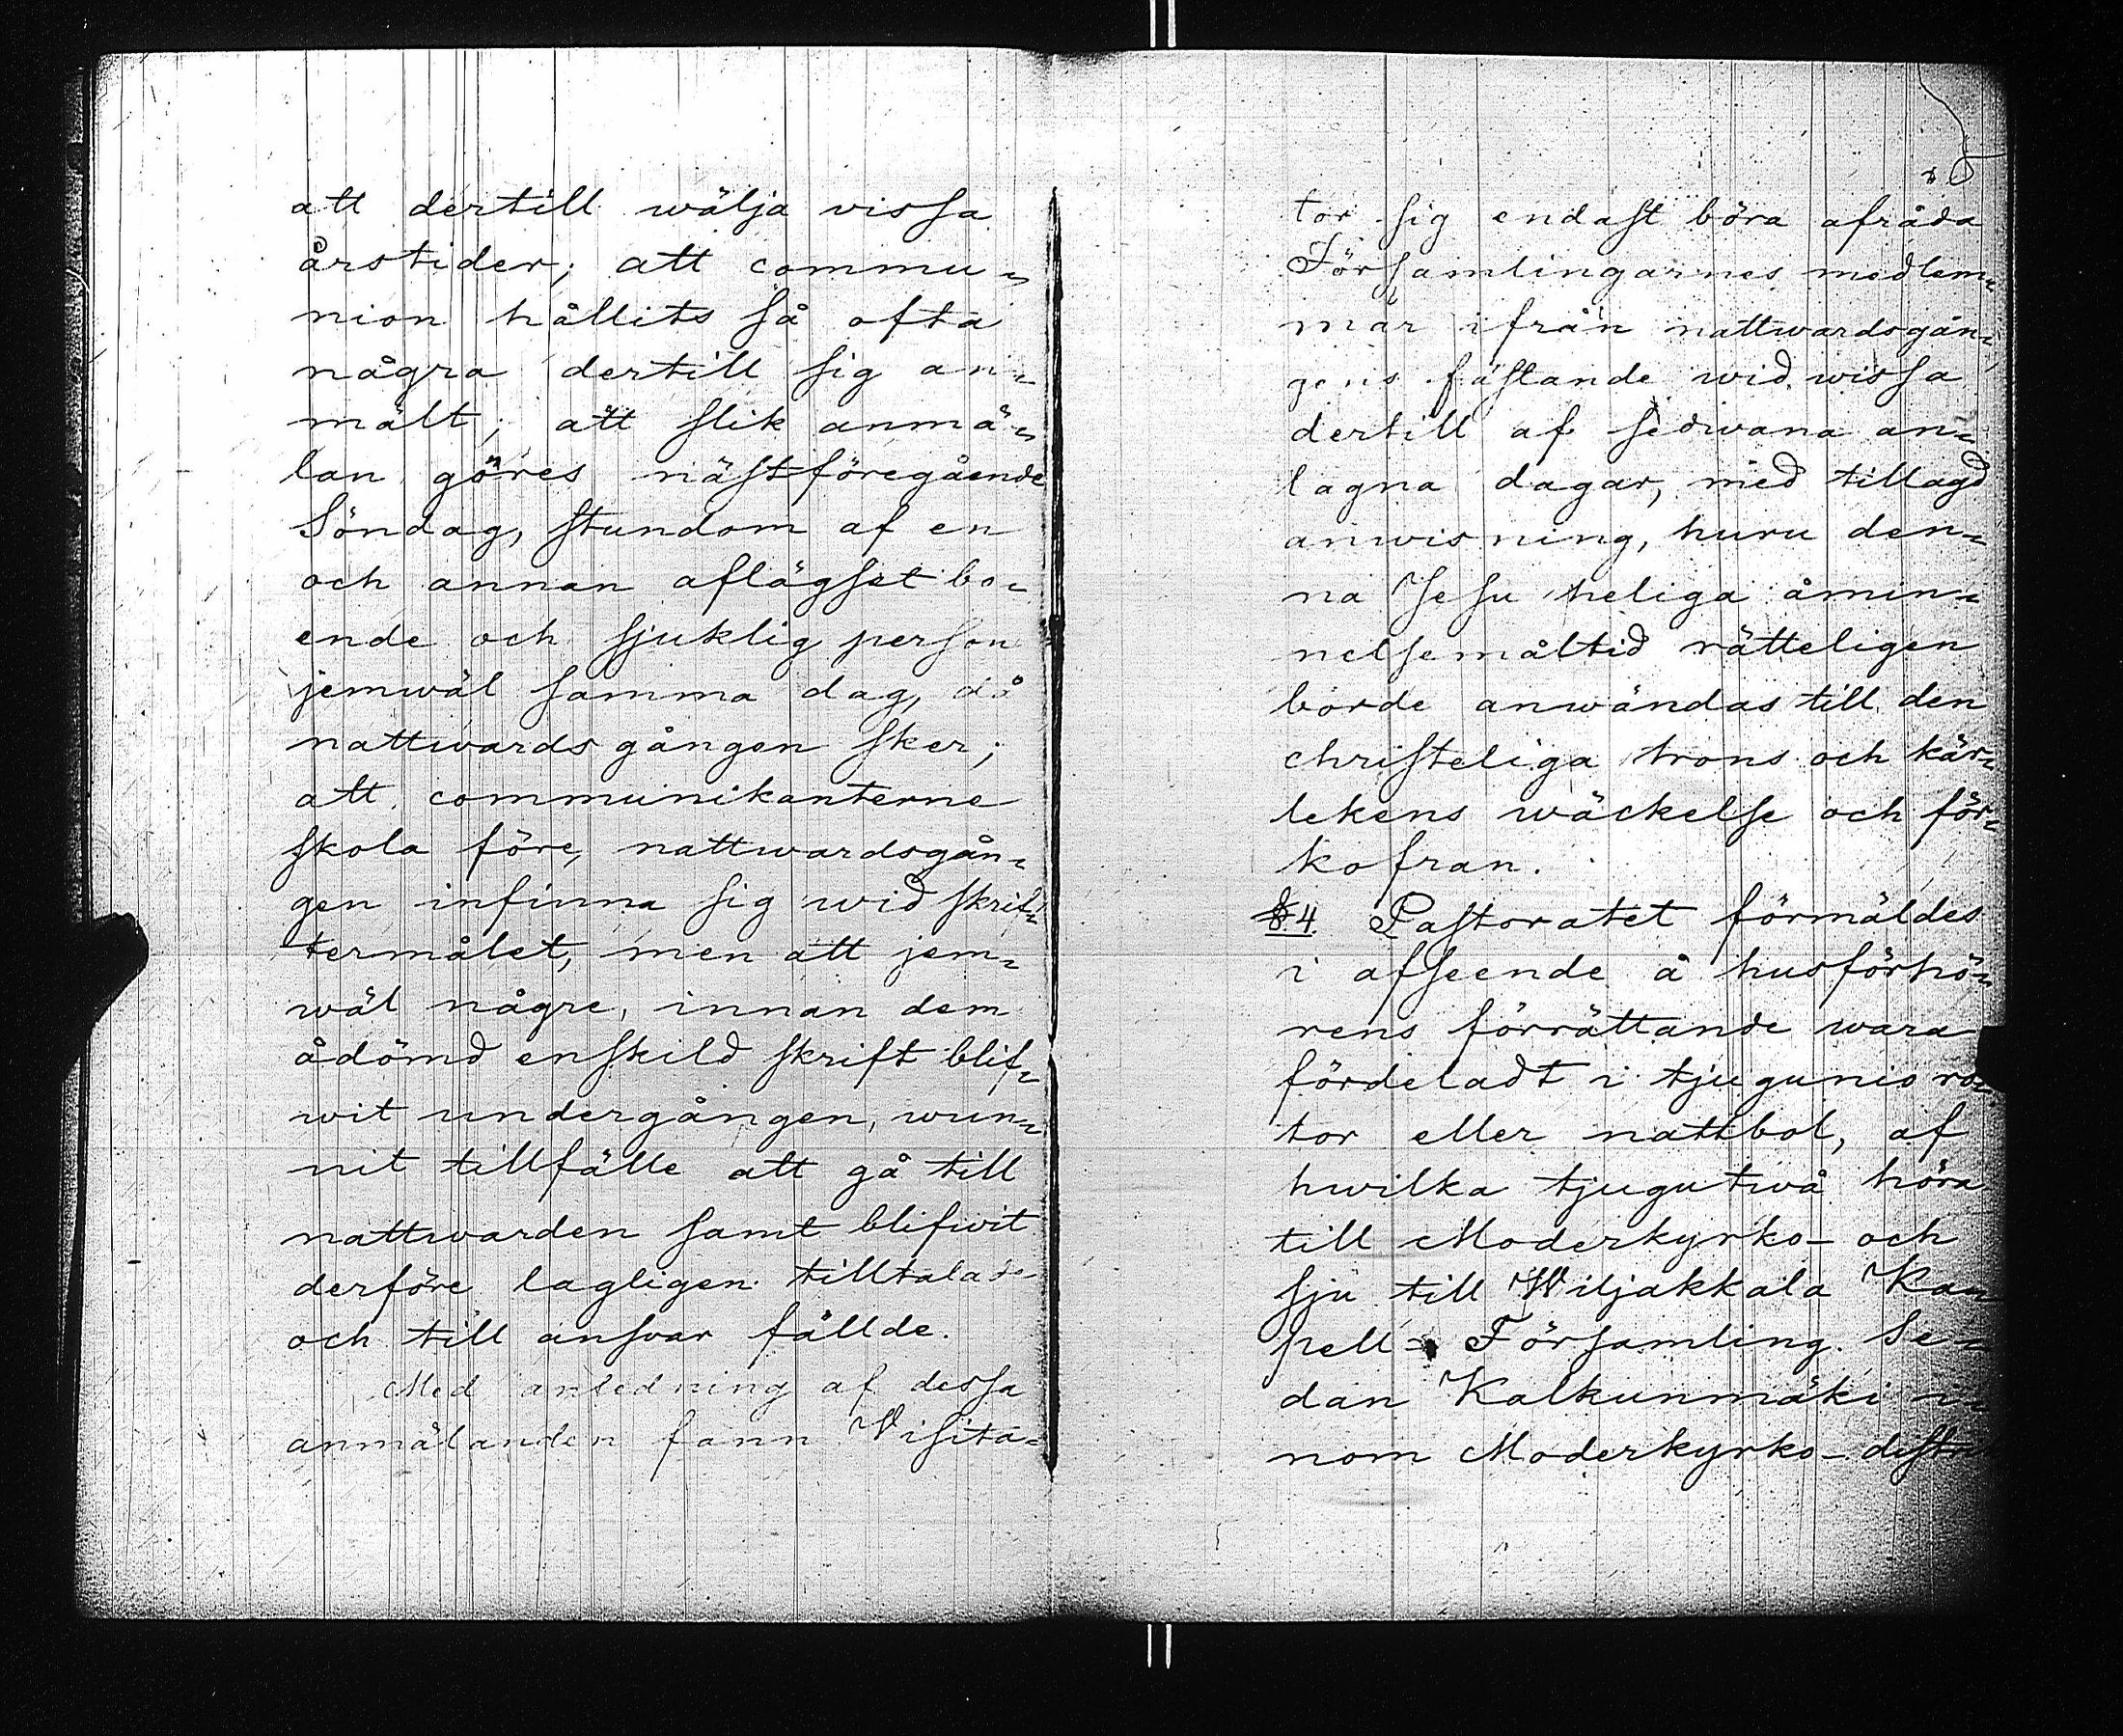 att dertill wälja vissa
årstider; att commu-
nion hållits så ofta
några dertill sig an-
mält; att slik anmä-
lan göres nästföregående
Söndag, stundom af en
och annan aflägset bo-
ende och sjuklig person
jemwäl samma dag, då
nattwardsgången sker;
att communikanterne
skola före nattwardsgån-
gen infinna sig wid skrif-
termålet, men att jem-
wäl någre, innan dem
ådömd enskild skrift blif-
wit undergången, wun-
nit tillfälle att gå till
nattwarden samt blifwit
derföre lagligen tilltalade
och till answar fällde.
Med anledning af dessa
anmälanden fann Visita-
5
tor sig endast böra afråda
Församlingarnes medlem-
mar ifrån nattwardsgån-
gens fästande wid wissa
dertill af sedwana an-
lagna dagar, med tillagd
anwisning, huru den-
na Jesu heliga åmin-
nelsemåltid rätteligen
borde anwändas till den
christeliga trons och kär-
lekens wäckelse och för-
kofran.
§ 4. Pastoratet förmäldes
i afseende å husförhö-
rens förrättande wara
fördeladt i tjugunio ro-
tor eller nattbol, af
hwilka tjugutwå höra
till Moderkyrko- och
sju till Wiljakkala Kap-
pell-Församling. Se-
dan Kalkunmäki i-
nom Moderkyrko-